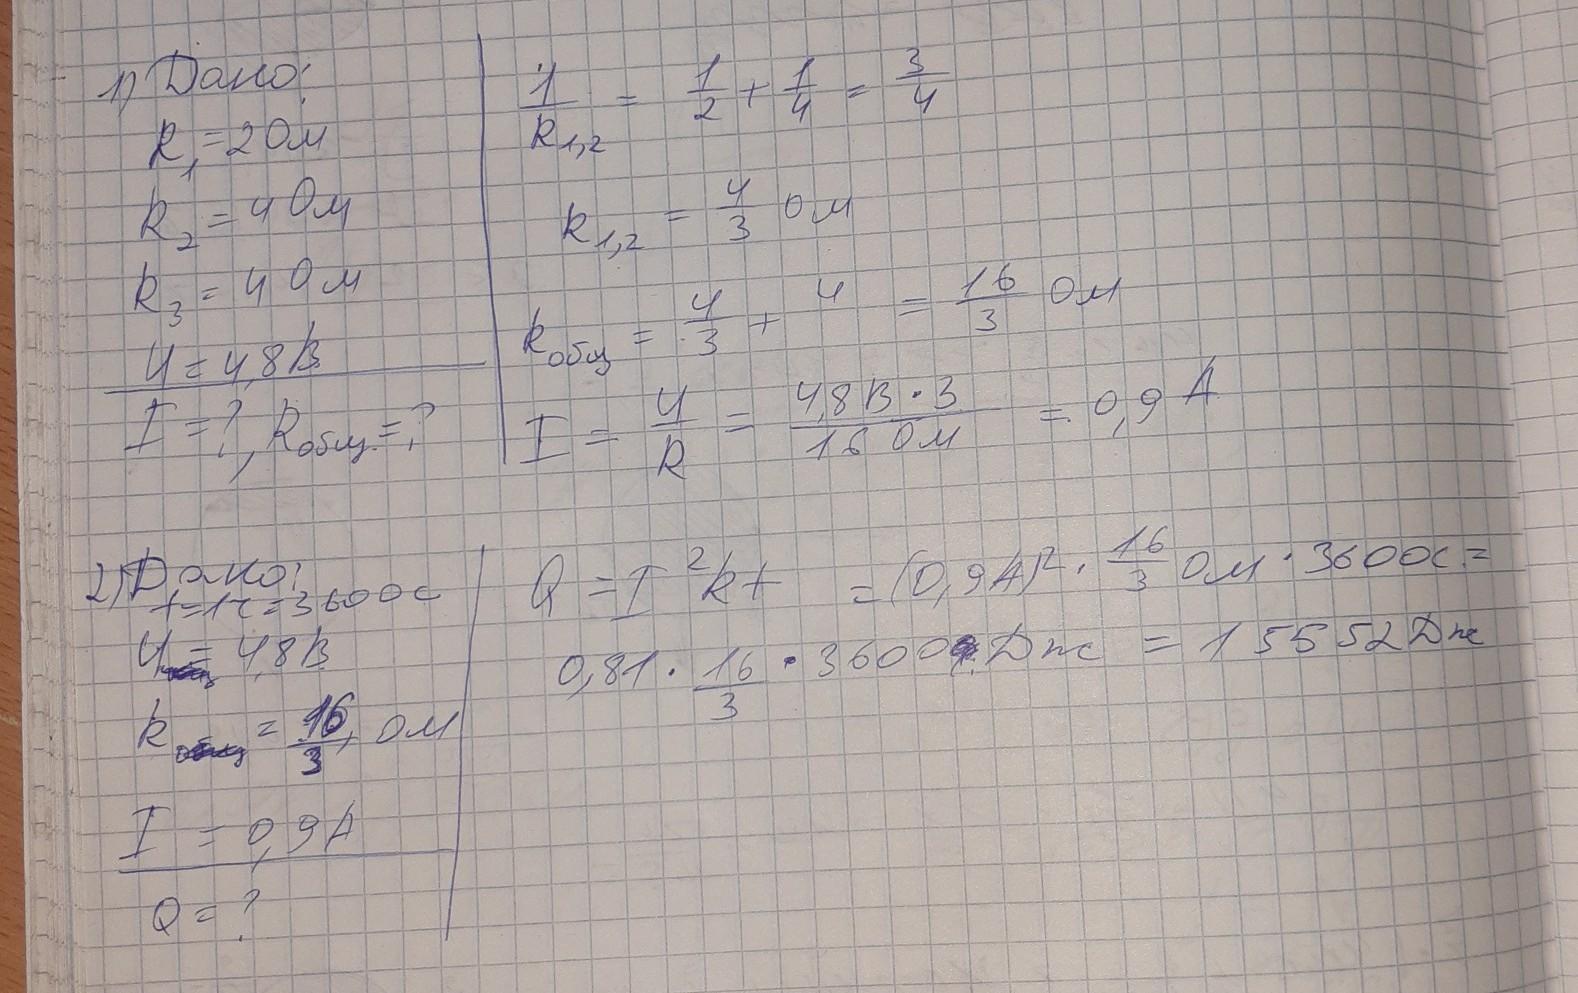 1) Дано:
R₁ = 2 Ом
R₂ = 4 Ом
R₃ = 4 Ом
U = 4,8 В
I = ?, Rобщ. = ?
1/R₁,₂ = 1/2 + 1/4 = 3/4
R₁,₂ = 4/3 Ом
Rобщ = 4/3 + 4 = 16/3 Ом
I = U/R = 4,8 В · 3/16 Ом = 0,9 А
2) Дано:
t = 1 ч = 3600 с
U = 4,8 В
R = 16/3, Ом
I = 0,9 А
Q = ?
Q = I²Rt = (0,9 А)² · 16/3 Ом · 3600 с =
0,81 · 16/3 · 3600 Дж = 15552 Дж